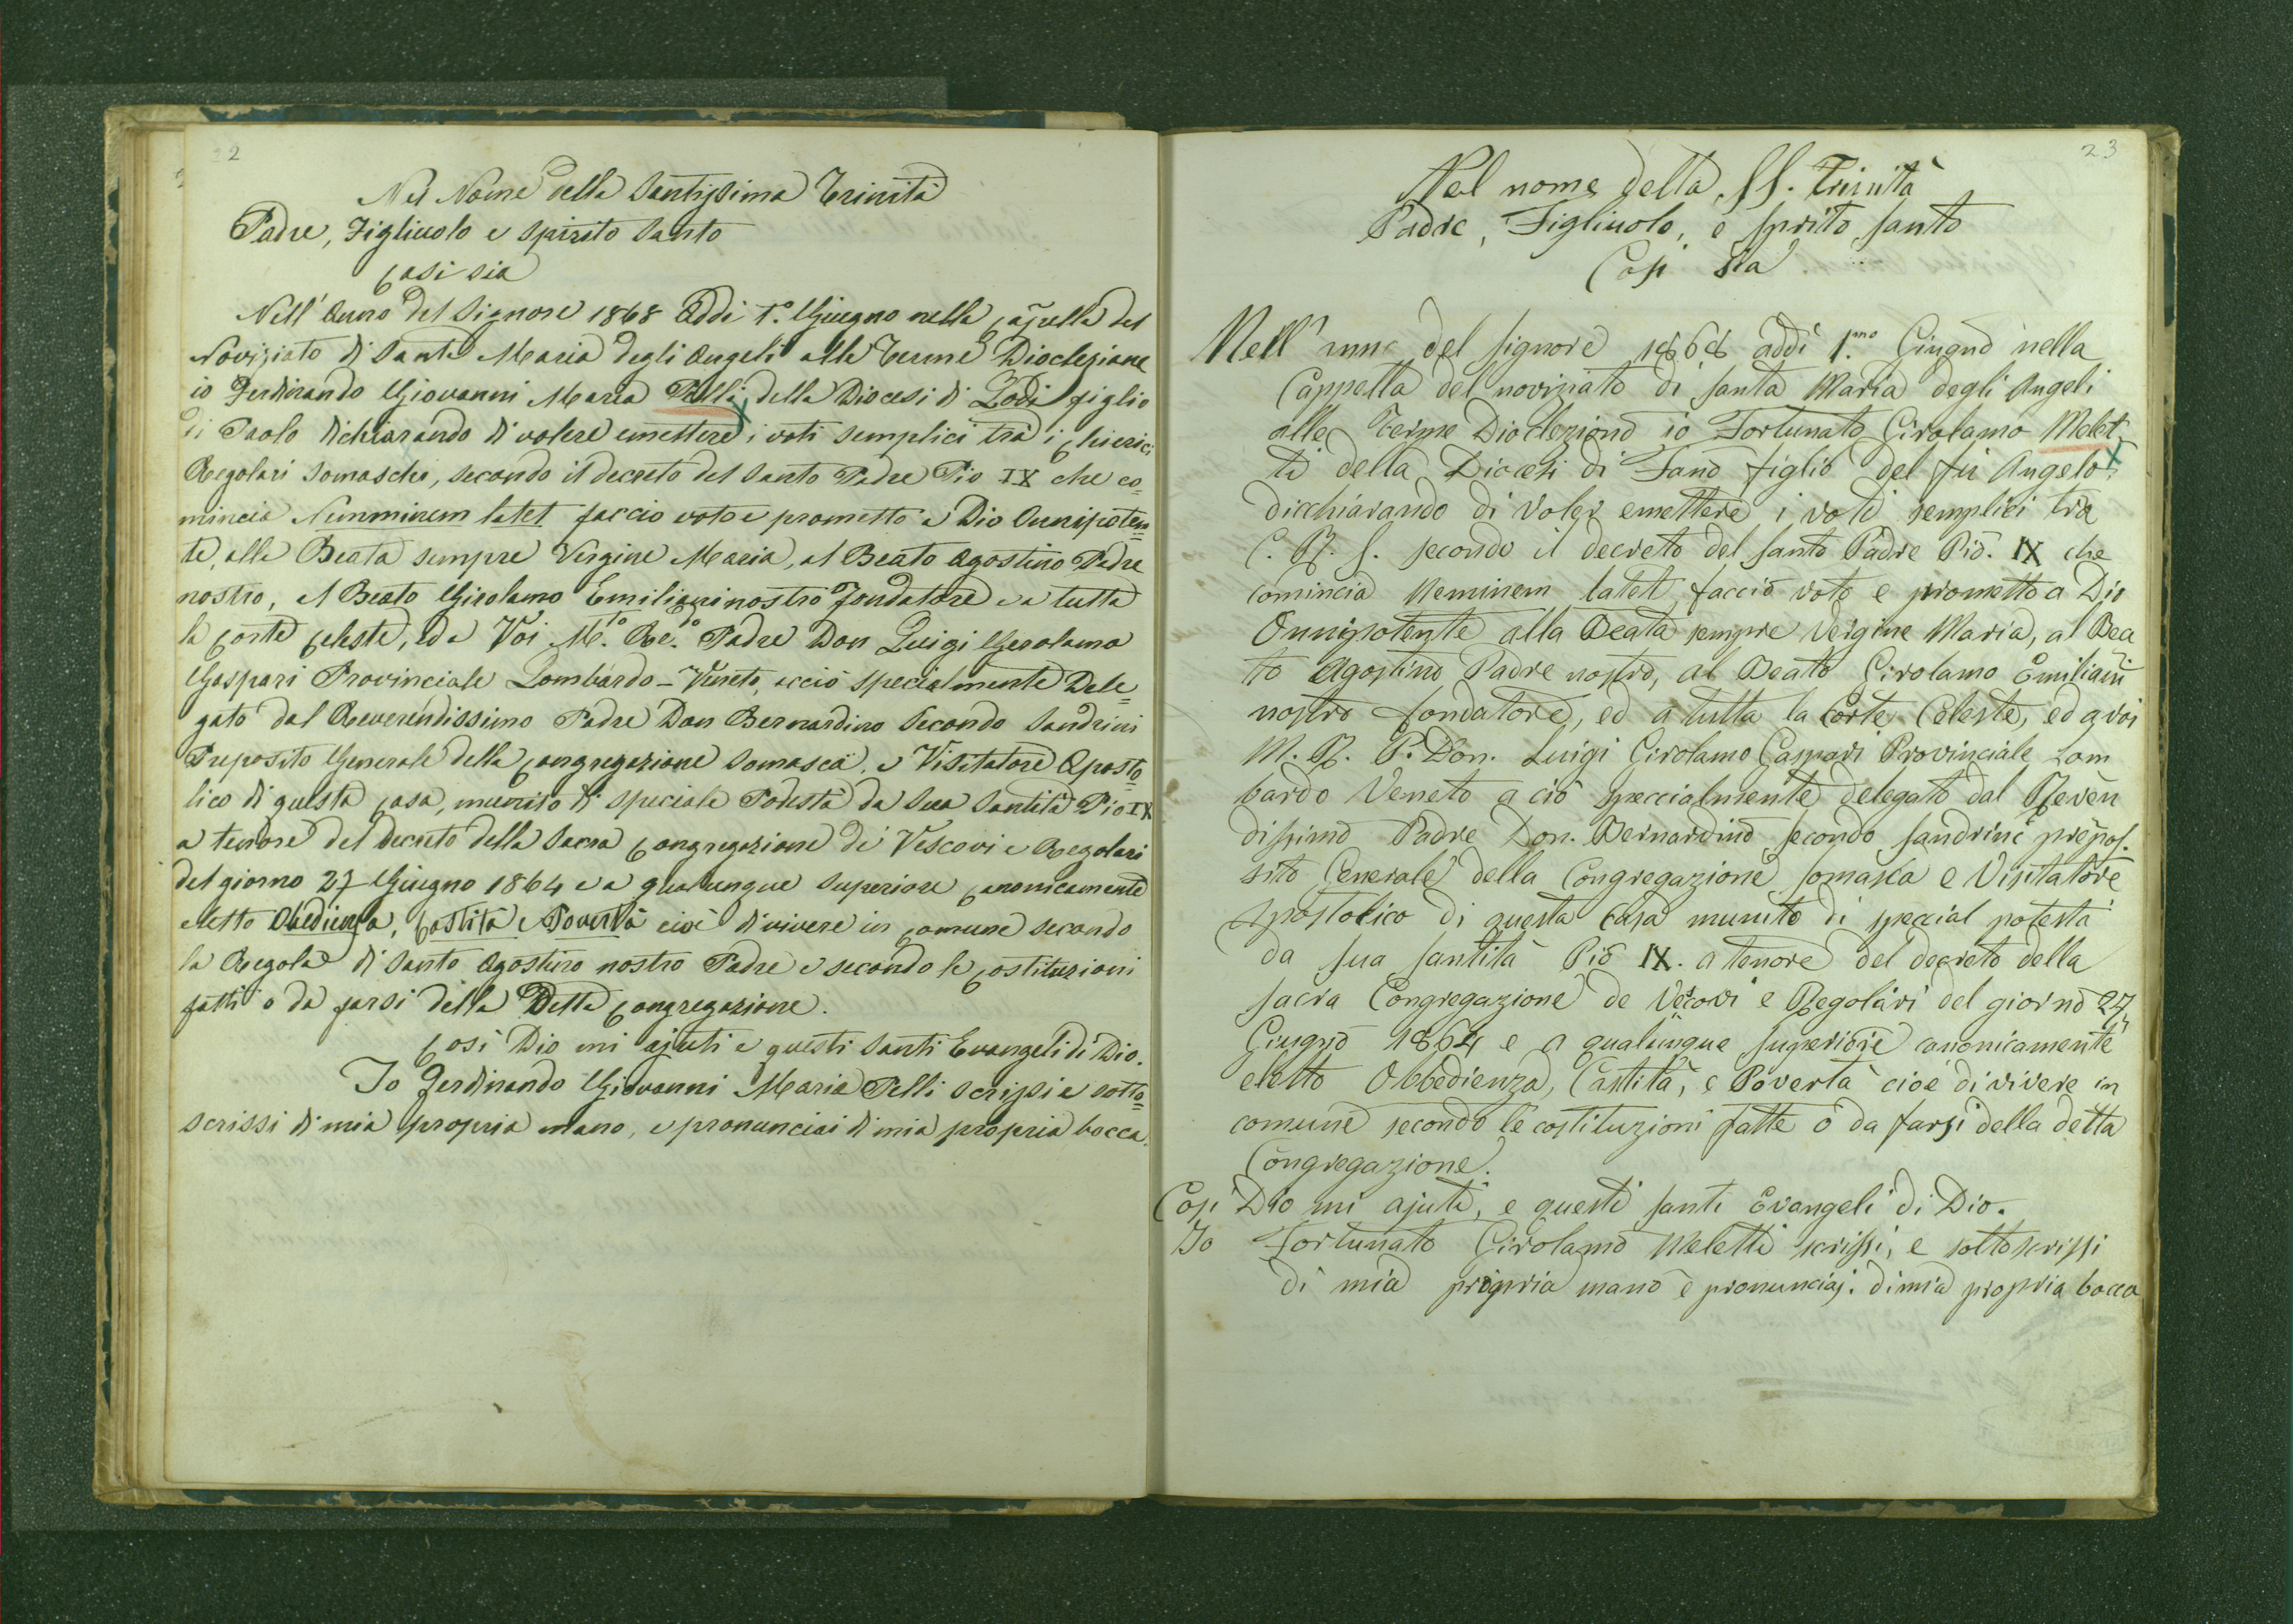 22
Nel Nome della Santissima Trinità
Padre, Figliuolo e Spirito Santo
Così sia
Nell'Anno del Signore 1868 Addì 1.° Giugno nella Capella del
Noviziato di Santa Maria degli Angeli alle Terme Diocleziane
io Ferdinando Giovanni Maria Pelli della Diocesi di Lodi figlio
di Paolo dichiarando di volere emettere i voti semplici tra i Chierici
Regolari Somaschi, secondo il decreto del Santo Padre Pio IX che co=
mincia Nemminem latet faccio voto e prometto a Dio Onnipoten=
te, alla Beata sempre Vergine Maria, al Beato Agostino Padre
nostro, al Beato Girolamo Emiliani nostro Fondatore e a tutta
la Corte Celeste, ed a Voi M.to Re.do Padre Don Luigi Gerolamo
Gaspari Provinciale Lombardo-Veneto, acciò specialmente Dele=
gato dal Reverendissimo Padre Don Bernardino Secondo Sandrini
Preposito Generale della Congregazione Somasca, e Visitatore Aposto=
lico di questa Casa, munito di speciale Podestà da Sua Santità Pio IX
a tenore del decreto della Sacra Congregazione di Vescovi e Regolari
del giorno 27 Giugno 1864 e a qualunque Superiore Canonicamente
eletto Obedienza, Castità e Povertà cioè di vivere in Comune secondo
la Regola di Santo Agostino nostro Padre e secondo le Costituzioni
fatti o da farsi della Detta Congregazione.
Così Dio mi ajuti e questi Santi Evangeli di Dio.
Io Ferdinando Giovanni Maria Pelli scrissi e sotto=
scrissi di mia propria mano, e pronunciai di mia propria bocca.
23
Nel nome della SS. Trinità
Padre, Figliuolo, e sprito santo
Così sia
Nell'anno del signore 1868 addì 1.mo Giugno nella
Cappella del noviziato di santa Maria degli Angeli
alle Terme Diocleziano io Fortunato Girolamo Melet
ti della Diocesi di Fano figlio del fu Angelo
dicchiarando di voler emettere i voti semplici tra
C. R. S. secondo il decreto del santo Padre Pio. IX che
comincia Neminem latet faccio voto e prometto a Dio
Onnipotente alla Beata sempre Vergine Maria, al Bea
to Agostino Padre nostro, al Beato Girolamo Emiliani
nostro fondatore, ed a tutta la Corte Celeste, ed a voi
M. R. P. Don. Luigi Girolamo Gaspari Provinciale Lom
bardo Veneto a ciò speccialmente delegato dal Reveren
dissimo Padre Don. Bernardino secondo sandrini prepos.
sito Generale della Congregazione somasca e Visitatore
Apostolico di questa casa munito di speccial potestà
da sua santità Pio IX. a tenore del decreto della
sacra Congregazione de Vescovi e Regolari del giorno 27
Giugno 1864 e a qualunque superiore canonicamente
eletto Obbedienza, Castità, e Povertà cioè di vivere in
comune secondo le costituzioni fatte o da farsi della detta
Congregazione.
Così Dio mi ajuti, e questi santi Evangeli di Dio.
Io Fortunato Girolamo Meletti scrissi, e sottoscrissi
di mia propria mano e pronunciai di mia propria bocca